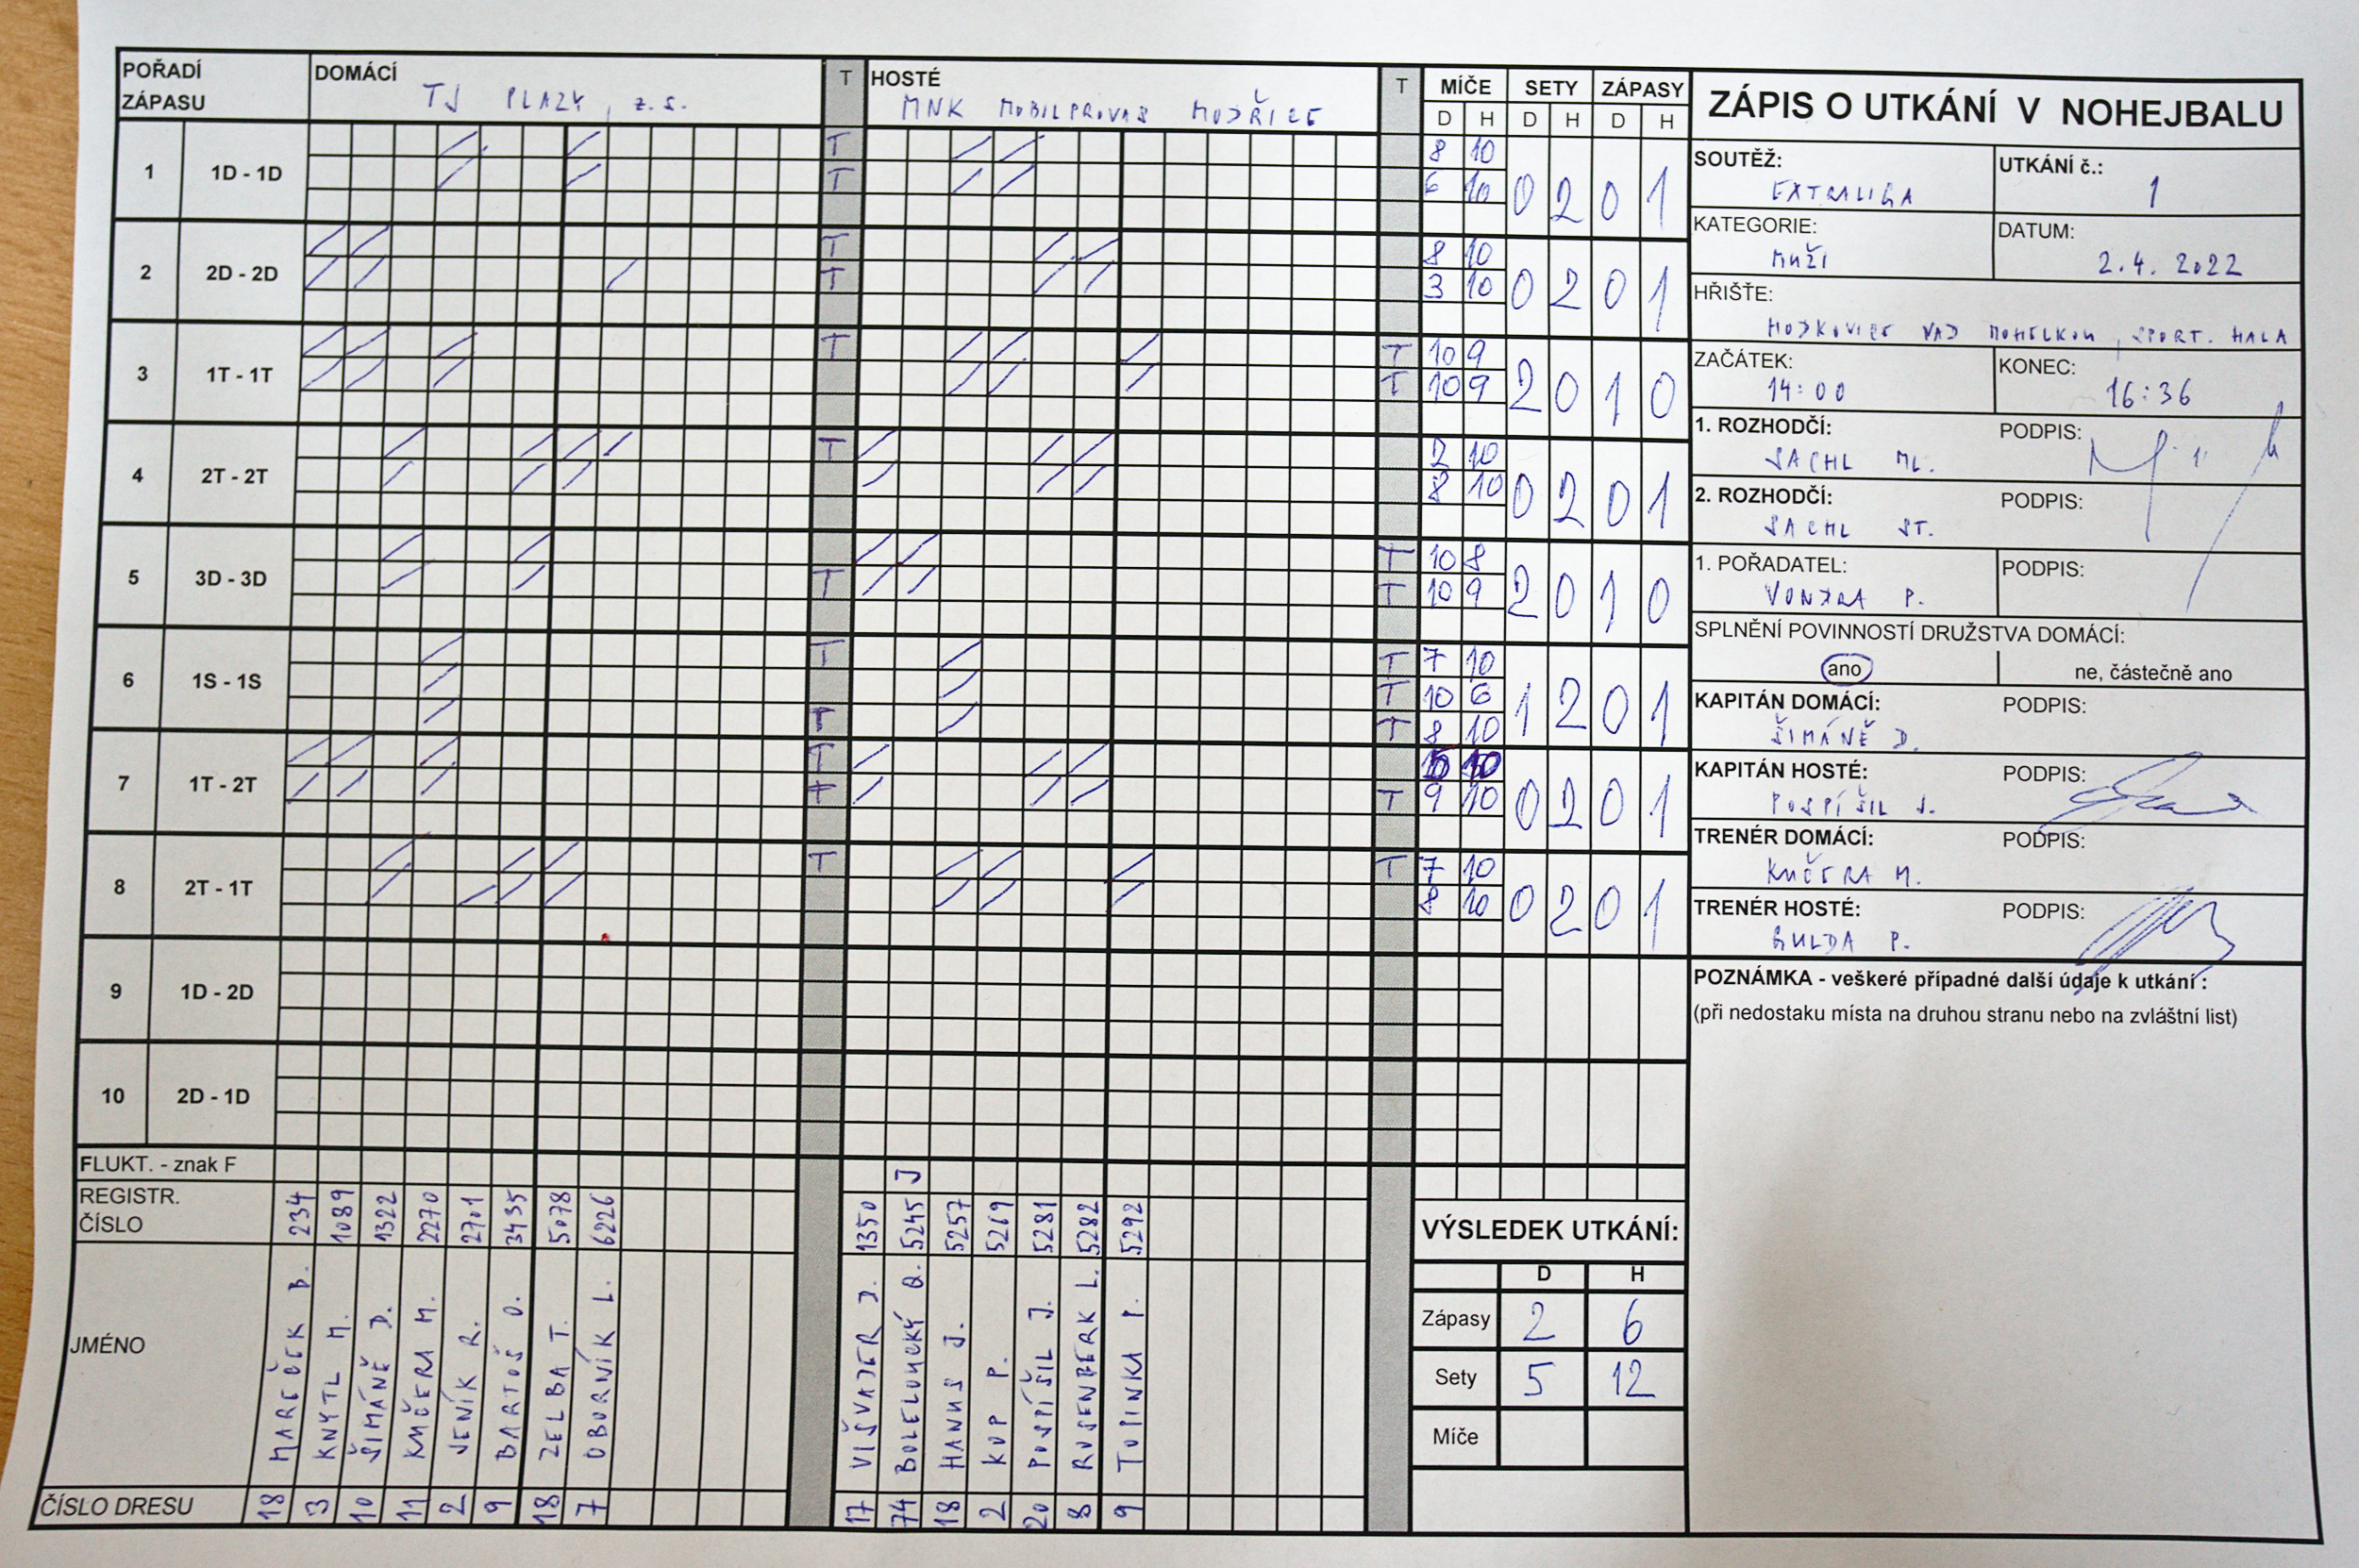 POŘADÍ ZÁPASU DOMÁCÍ T HOSTÉ T MÍČE SETY ZÁPASY
TJ PLAZY, z.s. MNK MOBILPROVAS MODŘICE
D H D H D H
1 1D - 1D T 8 10 0 2 0 1
T 6 10
2 2D - 2D T 8 10 0 2 0 1
T 3 10
3 1T - 1T T T 10 9 2 0 1 0
T 10 9
4 2T - 2T T 2 10 0 2 0 1
8 10
5 3D - 3D T 10 8 2 0 1 0
T T 10 9
6 1S - 1S T T 7 10 1 2 0 1
T 10 6
T T 8 10
7 1T - 2T T 10 0 2 0 1
T T 9 10
8 2T - 1T T T 7 10 0 2 0 1
8 10
9 1D - 2D
10 2D - 1D
FLUKT. - znak F J
REGISTR. ČÍSLO 2234 1089 1322 2270 2701 3435 5078 6226 1350 5245 5257 5269 5281 5282 5292
JMÉNO MAREČEK KNYTL M. ŠIMÁNĚ D. KUČERA M. JENÍK R. BARTOŠ O. ZELBA T. OBORNÍK L. VIŠVADER J. BOLELOUCKÝ HANUS J. KOP P. POSPÍŠIL J. ROSENBERK L. TOPINKA P.
ČÍSLO DRESU 18 3 10 11 2 9 18 7 17 74 18 2 20 8 9
VÝSLEDEK UTKÁNÍ:
D H
Zápasy 2 6
Sety 5 12
Míče
ZÁPIS O UTKÁNÍ V NOHEJBALU
SOUTĚŽ: UTKÁNÍ č.:
EXTRALIGA 1
KATEGORIE: DATUM:
MUŽI 2.4. 2022
HŘIŠTĚ:
HODKOVICE NAD MOHELKOU, SPORT. HALA
ZAČÁTEK: KONEC:
14:00 16:36
1. ROZHODČÍ: PODPIS:
SACHL ML.
2. ROZHODČÍ: PODPIS:
SACHL ST.
1. POŘADATEL: PODPIS:
VONDRA P.
SPLNĚNÍ POVINNOSTÍ DRUŽSTVA DOMÁCÍ:
ano ne, částečně ano
KAPITÁN DOMÁCÍ: PODPIS:
ŠIMÁNĚ D.
KAPITÁN HOSTÉ: PODPIS:
POSPÍŠIL J.
TRENÉR DOMÁCÍ: PODPIS:
KUČERA M.
TRENÉR HOSTÉ: PODPIS:
GULDA P.
POZNÁMKA - veškeré případné další údaje k utkání :
(při nedostaku místa na druhou stranu nebo na zvláštní list)